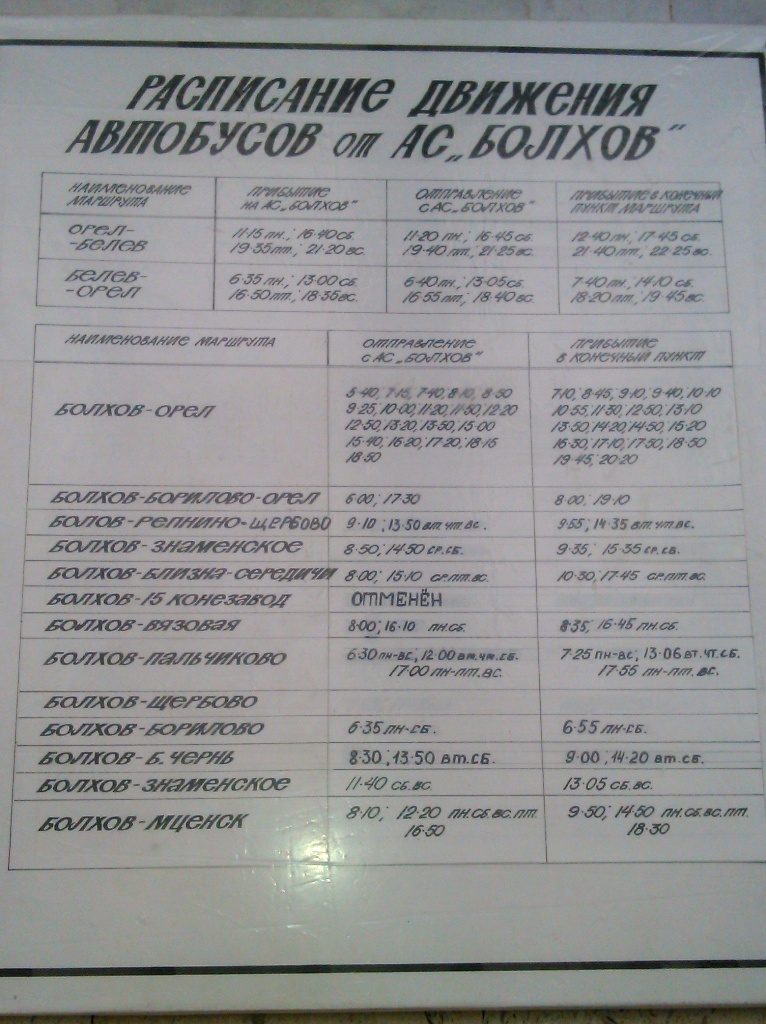 РАСПИСАНИЕ ДВИЖЕНИЯ
АВТОБУСОВ от АС „БОЛХОВ"
НАИМЕНОВАНИЕ МАРШРУТА ПРИБЫТИЕ НА АС „БОЛХОВ" ОТПРАВЛЕНИЕ С АС „БОЛХОВ" ПРИБЫТИЕ В КОНЕЧНЫЙ ПУНКТ МАРШРУТА
ОРЕЛ- 11-15 пн.; 16-40 сб. 11-20 пн.; 16-45 сб. 12-40 пн.; 17-45 сб.
-БЕЛЕВ 19-35 пт.; 21-20 вс. 19-40 пт.; 21-25 вс. 21-40 пт.; 22-25 вс.
БЕЛЕВ- 6-35 пн.; 13-00 сб. 6-40 пн.; 13-05 сб. 7-40 пн.; 14-10 сб.
-ОРЕЛ 16-50 пт.; 18-35 вс. 16-55 пт.; 18-40 вс. 18-20 пт.; 19-45 вс.
НАИМЕНОВАНИЕ МАРШРУТА ОТПРАВЛЕНИЕ С АС „БОЛХОВ" ПРИБЫТИЕ В КОНЕЧНЫЙ ПУНКТ
БОЛХОВ-ОРЕЛ
5-40, 7-15, 7-40, 8-10, 8-50 7-10, 8-45, 9-10, 9-40, 10-10
9-25, 10-00, 11-20, 11-50, 12-20 10-55, 11-30, 12-50, 13-10
12-50, 13-20, 13-50, 15-00 13-50, 14-20, 14-50, 15-20
15-40, 16-20, 17-20, 18-15 16-30, 17-10, 17-50, 18-50
18-50 19-45, 20-20
БОЛХОВ-БОРИЛОВО-ОРЕЛ 6-00; 17-30 8-00; 19-10
БОЛОВ-РЕПНИНО-ЩЕРБОВО 9-10; 13-50 вт.чт.вс. 9-55; 14-35 вт.чт.вс.
БОЛХОВ-ЗНАМЕНСКОЕ 8-50; 14-50 ср.сб. 9-35; 15-35 ср.св.
БОЛХОВ-БЛИЗНА-СЕРЕДИЧИ 8-00; 15-10 ср.пт.вс. 10-30; 17-45 ср.пт.вс.
БОЛХОВ-15 КОНЕЗАВОД ОТМЕНЁН
БОЛХОВ-ВЯЗОВАЯ 8-00; 16-10 пн.сб. 8-35; 16-45 пн.сб.
БОЛХОВ-ПАЛЬЧИКОВО 6-30 пн-вс.; 12-00 вт.чт.сб. 7-25 пн-вс; 13-06 вт.чт.сб.
17-00 пн-пт.вс. 17-55 пн-пт. вс.
БОЛХОВ-ЩЕРБОВО
БОЛХОВ-БОРИЛОВО 6-35 пн-сб. 6-55 пн-сб.
БОЛХОВ-Б. ЧЕРНЬ 8-30; 13-50 вт.сб. 9-00; 14-20 вт.сб.
БОЛХОВ-ЗНАМЕНСКОЕ 11-40 сб.вс. 13-05 сб.вс.
БОЛХОВ-МЦЕНСК 8-10; 12-20 пн.сб.вс.пт. 9-50; 14-50 пн.сб.вс.пт.
16-50 18-30